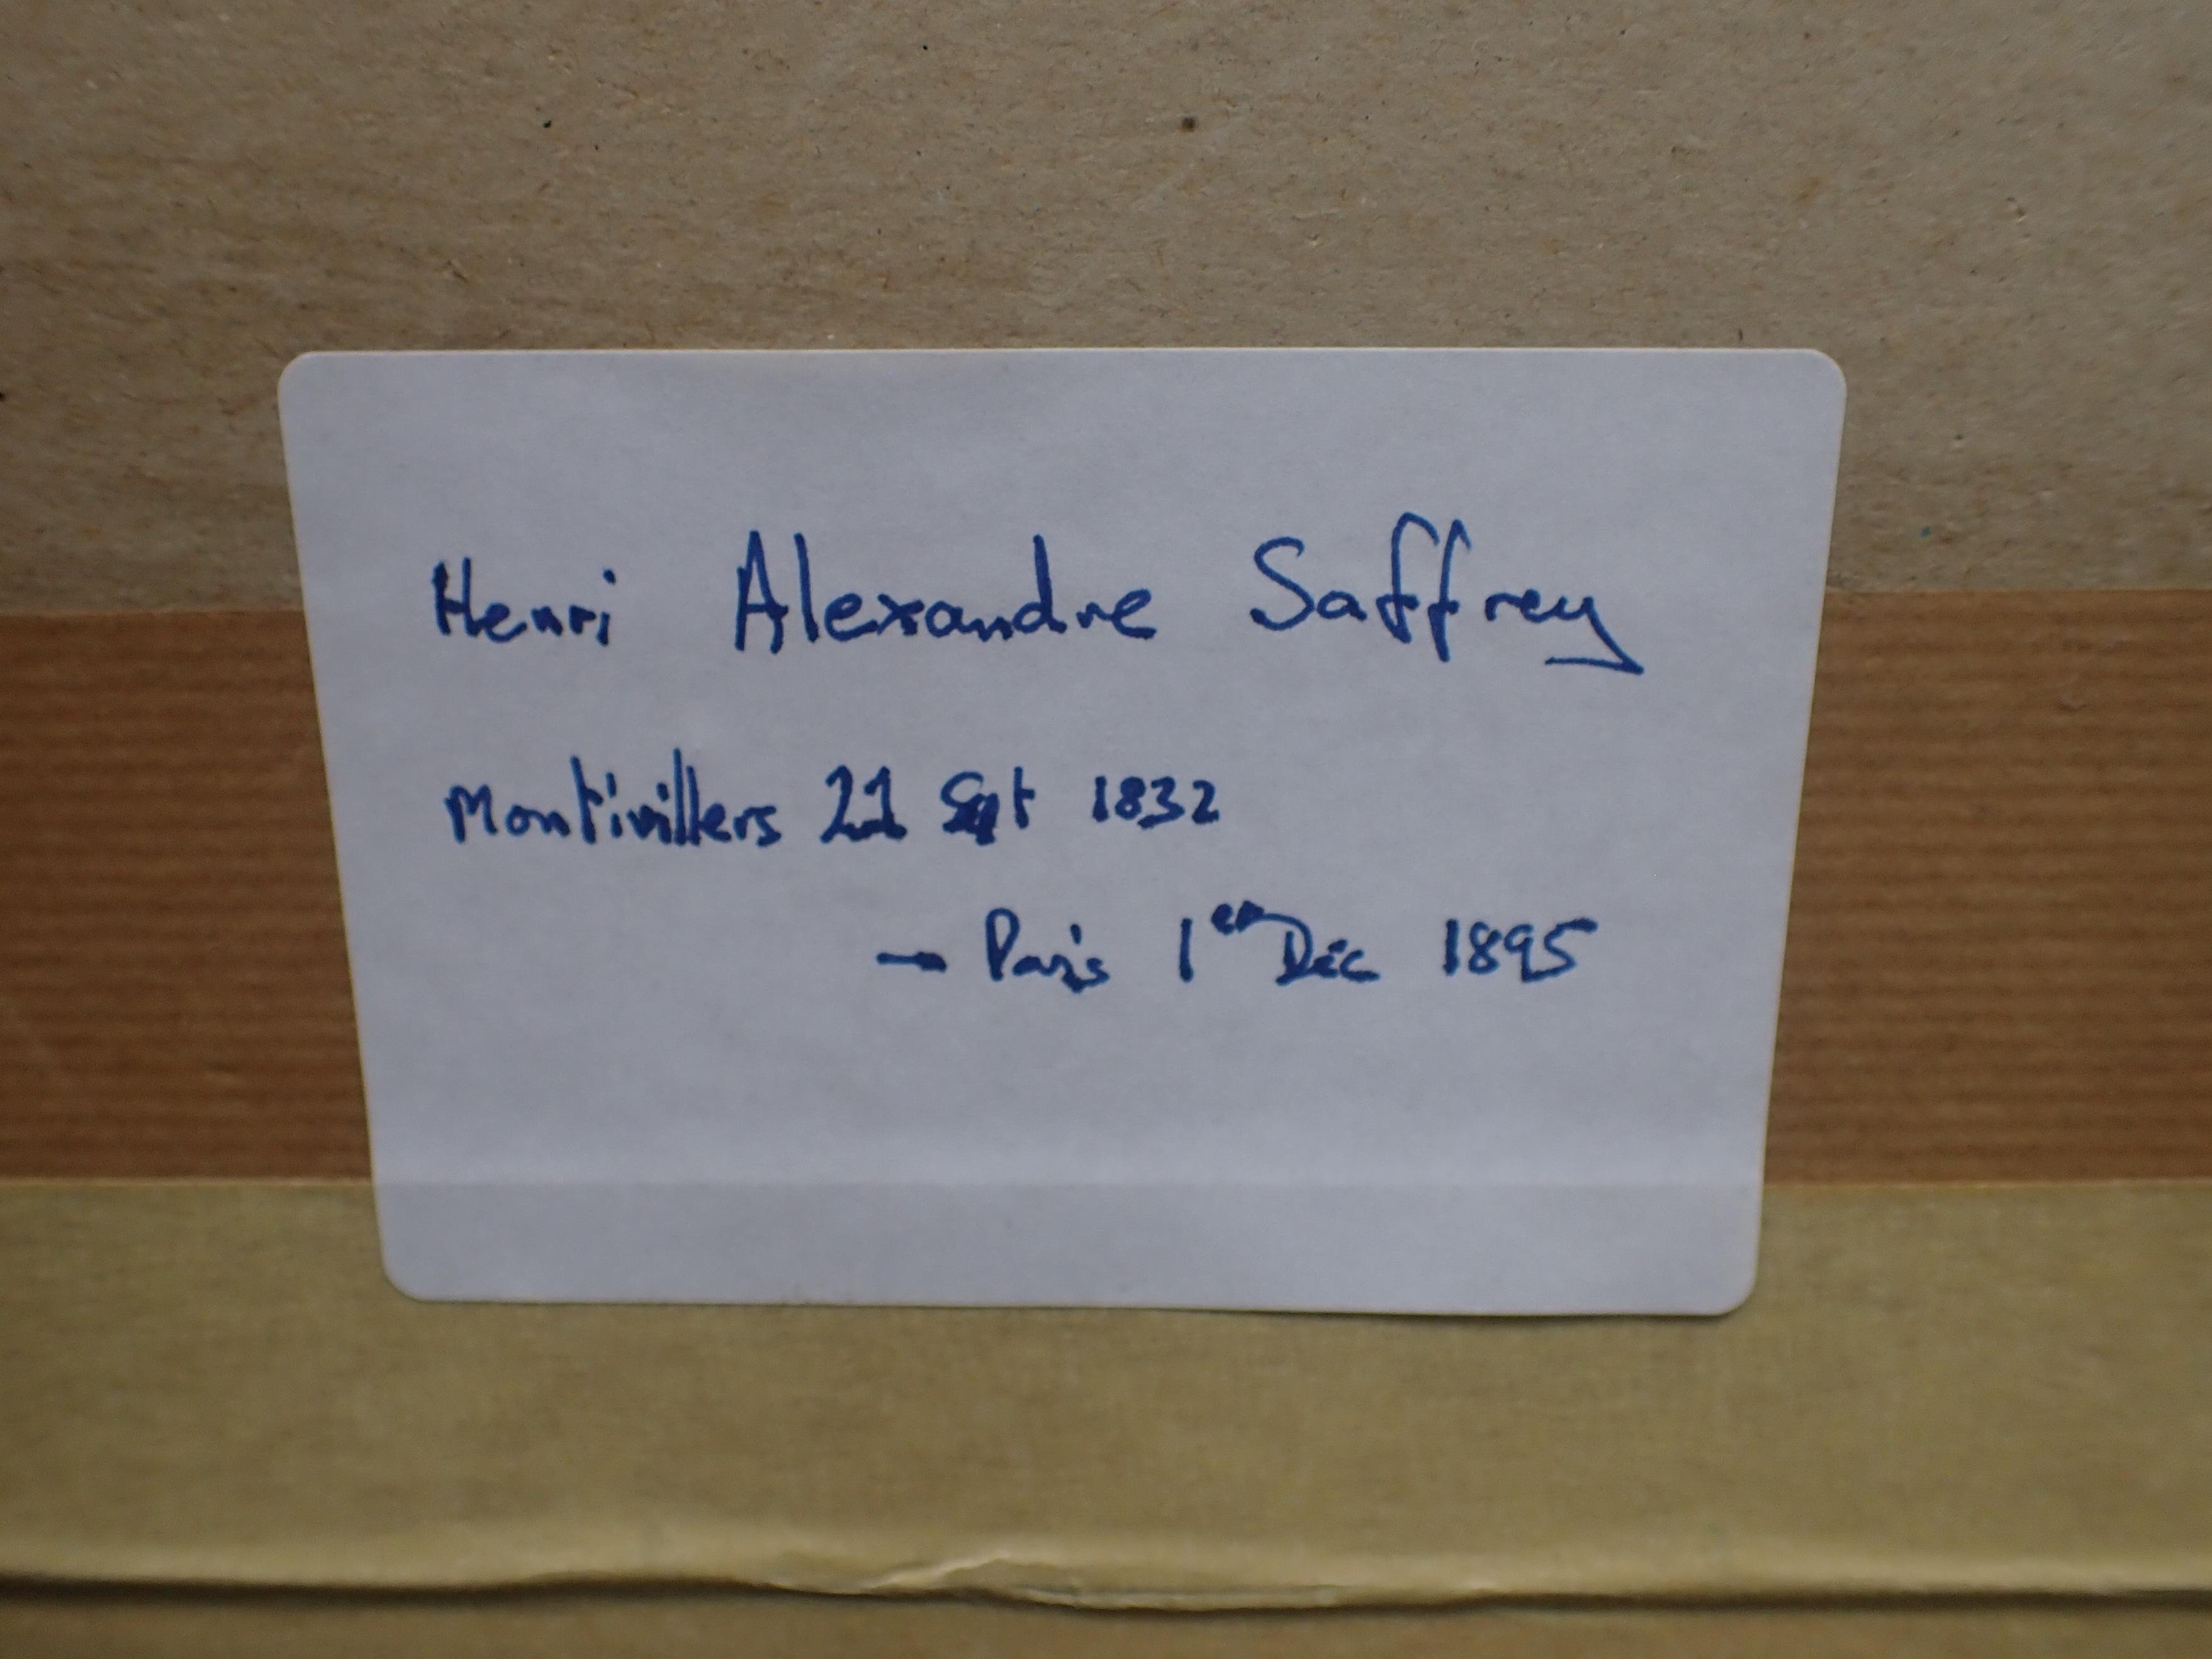 Henri Alexandre Saffrey
Montivillers 21 Sept 1832
→ Paris 1er Déc 1895